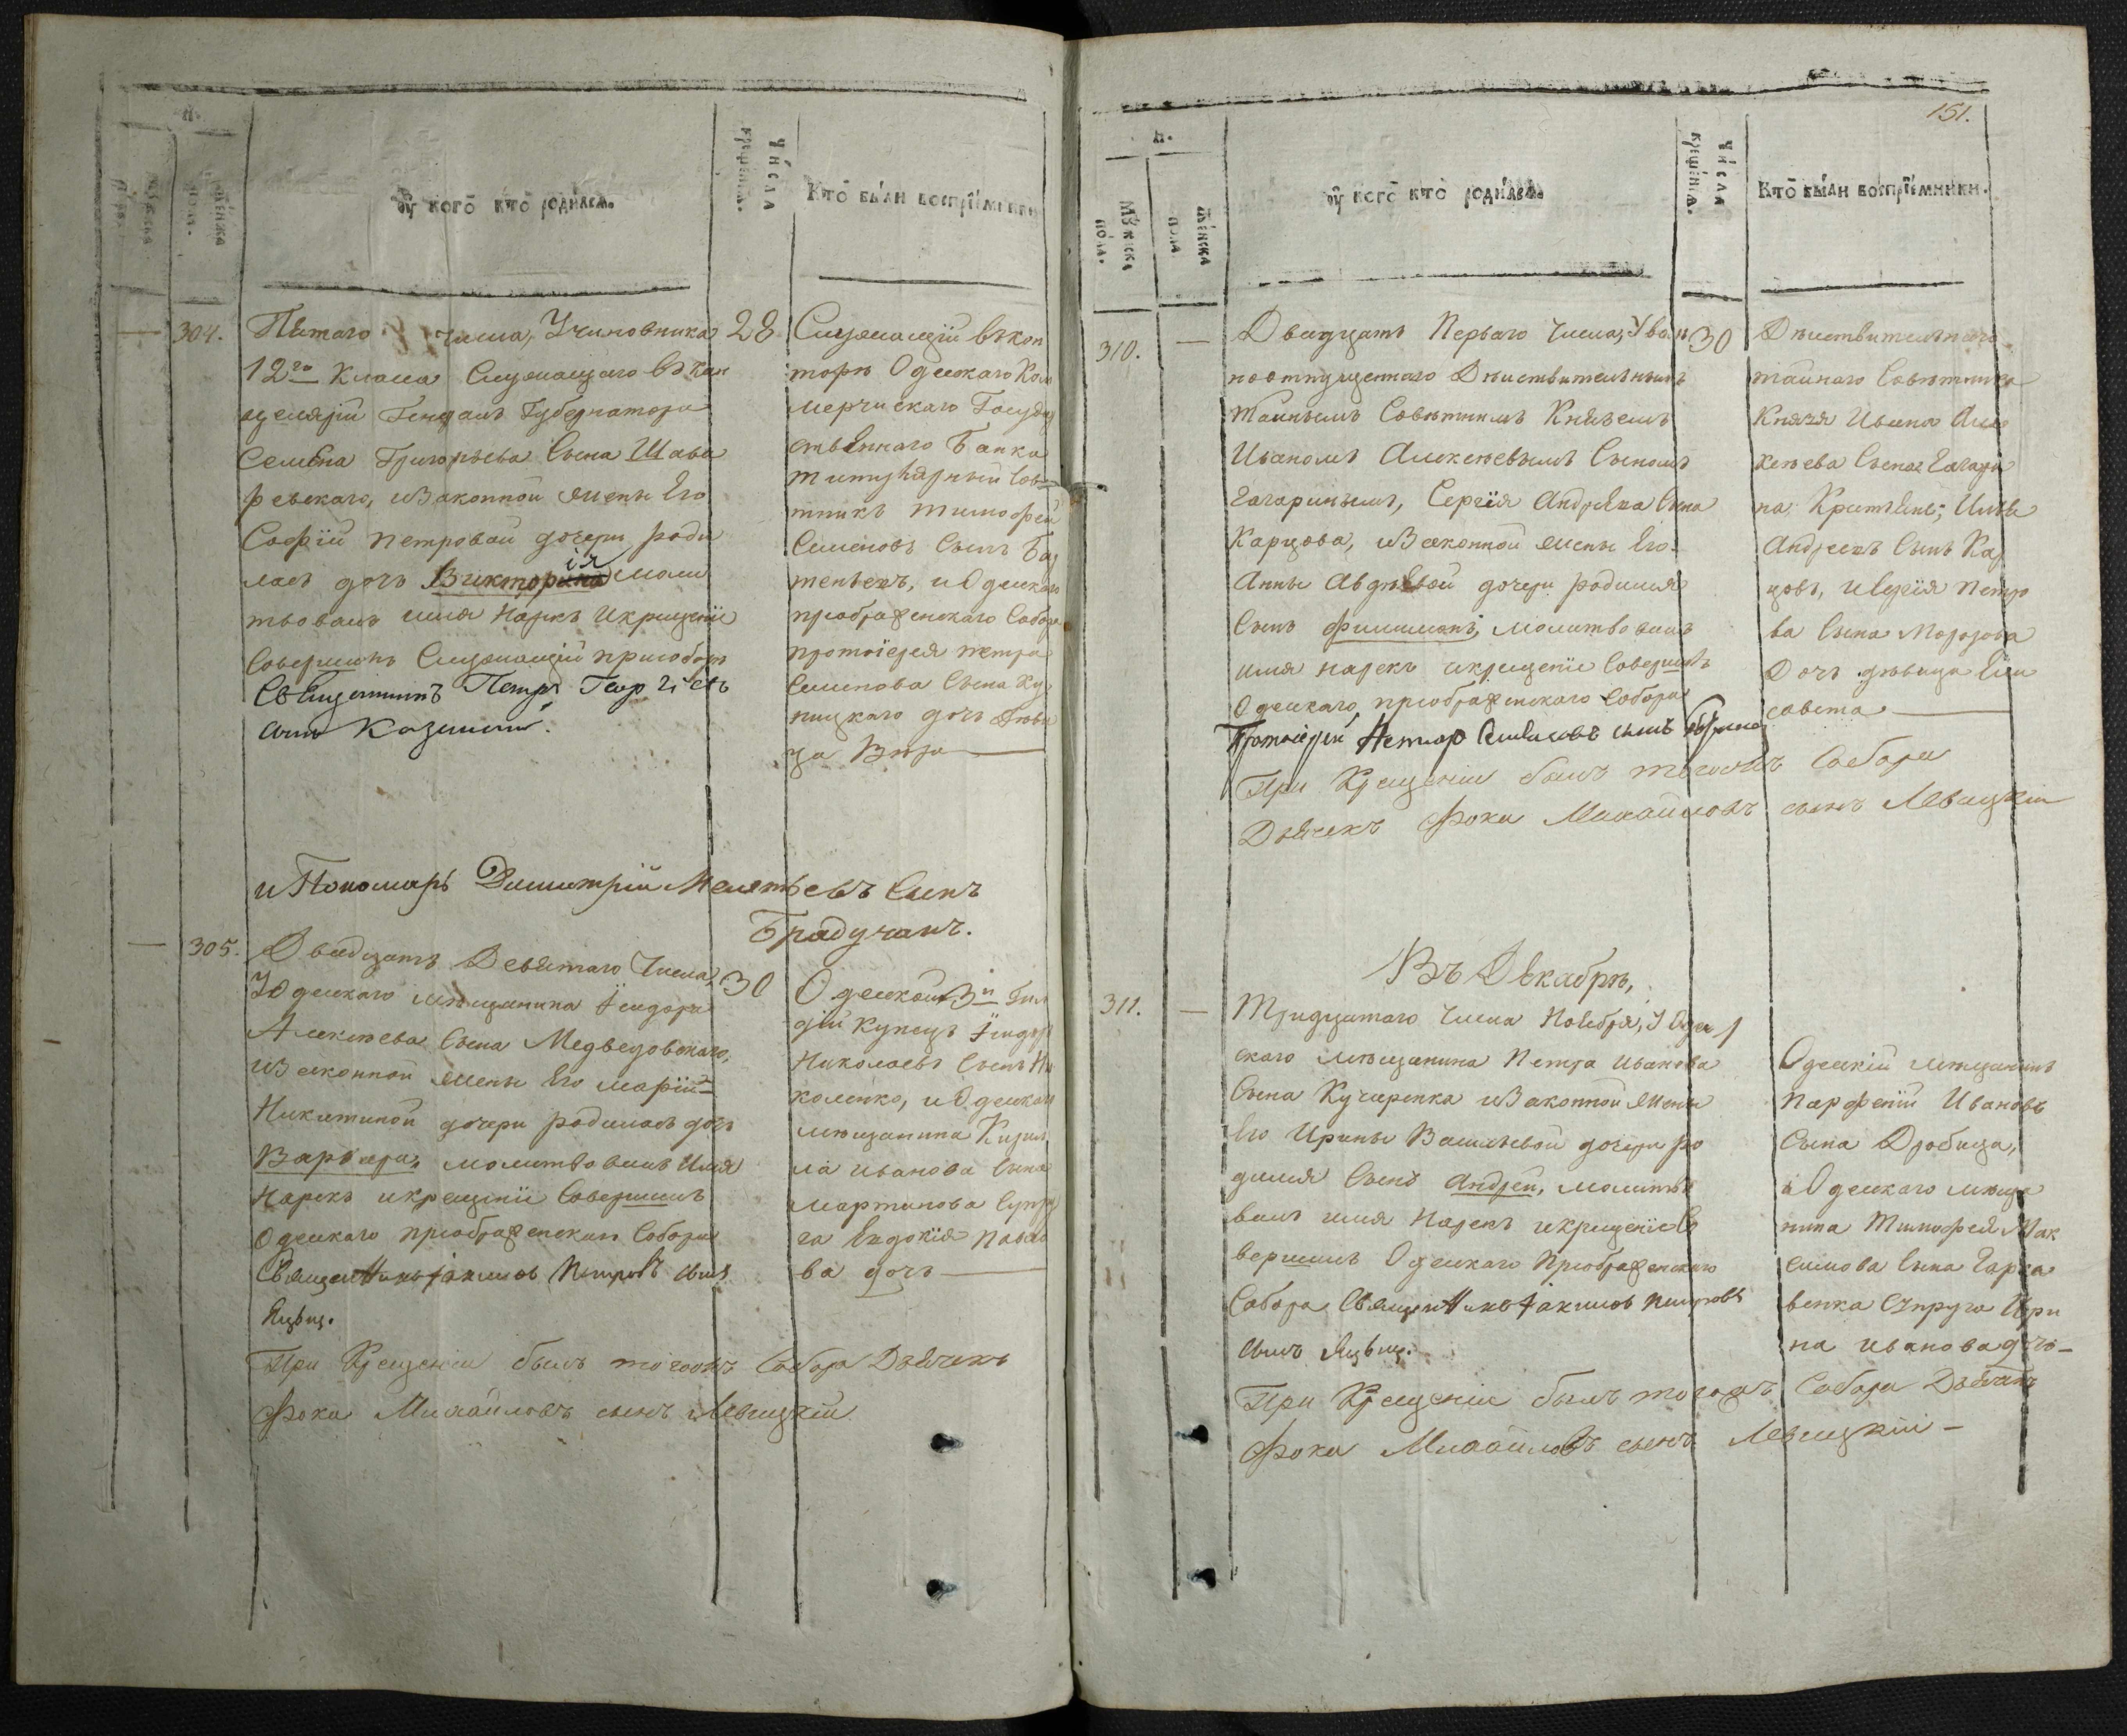 Оу҆ когѡ̀ кто̀ роди́лсѧ.
Числа̀ креще́нїѧ.
Кто̀ бы́ли воспрїе́мники
304.
Пятаго числа, Учиновника
12го класса Служащаго въ кан
целяріи Генералъ Губернатора
Семена Григорьева Сына Шава
ревскаго, изаконной жены Его
Софіи Петровой дочери роди
лась дочь Викторина ія моли
твовалъ имя нарекъ икрещеніе
Совершилъ Служащій присоборѣ
Священникъ Петръ Георгіевъ
сынъ Казинскій.
28
Служащій въкон
торѣ Одескаго Ком
мерческаго Госуда
ственнаго Банка
титулярный сов
тникъ тимофей
Семеновъ Сынъ
и Одескаго
преображенскаго Собора
протоіерея петра
Семенова Сына Ку
ницкаго дочь дѣви
ца Вѣра
и Пономарь Димитрій Мелетьевъ Сынъ
Брадучанъ.
305.
Двадцать Девятаго Числа,
Уодескаго мѣщанина Ѳеодора
Алексѣева Сына Медведовскаго,
изаконной жены Его маріи
Никитиной дочери родилась дочь
Варвара, молитвовалъ Имя
Нарекъ икрещеніе Совершилъ
Одескаго преображенскаго Собора
Священникъ Іакимъ Петровъ сынъ
Яцьиц.
30
Одескій 3й Гил
діи Купецъ Ѳеодоръ
Николаевъ Сынъ Ни
коленко, и Одескаго
мѣщанина Кирил
ла иванова Сына
мартинова Супру
га Евдокія Павло
ва дочь
При Крещеніи былъ тогожъ Собора Дьячекъ
Фока Михайловъ сынъ Левицкій
151.
Му́жеска по́ла.
Же́нска по́ла
Оу҆ когѡ̀ кто̀ роди́лсѧ.
Числа̀ креще́нїѧ.
Кто̀ бы́ли воспрїе́мники.
310.
Двадцать Перваго Числа, Увол
ноотпущеннаго Дѣйствительнымъ
Тайнымъ Совѣтникомъ Княземъ
Иваномъ Алексѣевымъ Сыномъ
Гагаринымъ, Сергія Андреяна Сына
Карцова, изаконной жены Его
Анны Авдѣевой дочери родился
Сынъ Филимонъ, молитвовалъ
имя нарекъ икрещеніе Совершилъ
Одескаго преображенскаго Собора
Протоіерей Петръ Семеновъ сынъ Куницкій
30
Дѣйствительнаго
тайнаго Совѣтника
Князя Ивана Але
ксѣева Сына Гагари
на Крестьянъ, Илья
Андреевъ Сынъ Кар
цовъ, иСергія Петро
ва Сына Морозова
Дочь дѣвица Ели
савета
При Крещеніи былъ тогожъ Собора
Дьячекъ Фока Михайловъ сынъ Левицкій
Въ Декабрѣ,
311.
Тридцатаго Числа Ноября, У Оде
скаго мѣщанина Петра Иванова
Сына Кучеренка изаконной жены
Его Ирины Васильевой дочери ро
дился Сынъ Андрей, молитво
валъ имя Нарекъ икрещеніе Со
вершилъ Одескаго Преображенскаго
Собора Священникъ Іакимъ Петровъ
сынъ Яцьиц.
1
Одескій мѣщанинъ
Парфеній Ивановъ
Сына Дробица,
и Одескаго мѣща
нина Тимофея Мак
симова Сына Гарка
венка Супруга Ири
на иванова дочь
При Крещеніи былъ тогожъ Собора Дьячекъ
Фока Михайловъ сынъ Левицкій